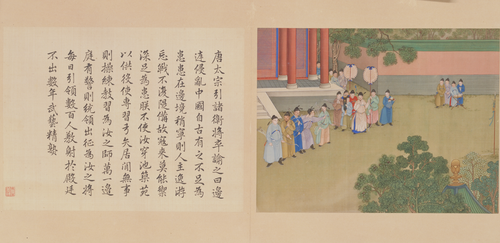 唐太宗引諸衛將卒諭之曰邊
遠侵亂中國自古有之不足為
患患在邊境稍寧則人主逸遊
忘戰不復隄備故寇來莫能禦
深足為患朕不使汝穿池築苑
以供役使專習弓矢居閒無事
則操練教習為汝之師萬一邊
庭有警則統領出征為汝之將
每日引領數百人教射於殿廷
不出數年武藝精熟